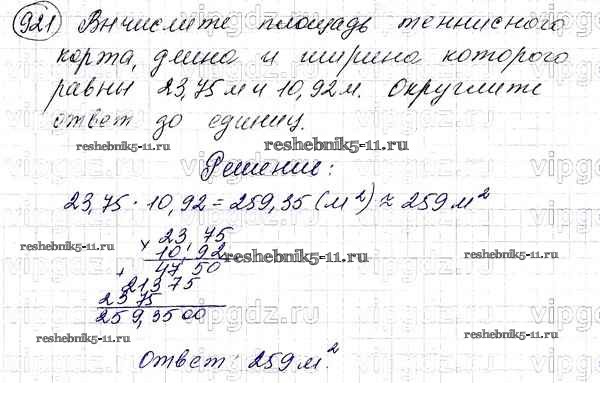 921 Вычислите площадь теннисного
корта, длина и ширина которого
равны 23,75 м и 10,92 м. Округлите
ответ до единиц.
reshebnik5-11.ru reshebnik5-11.ru
Решение:
23,75 · 10,92 = 259,35 (м²) ≈ 259 м²
× 23,75
10,92
reshebnik5-11.ru reshebnik5-11.ru
+ 47 50
213 75
23 75
259,3500
reshebnik5-11.ru reshebnik5-11.ru
Ответ: 259 м².
vipgdz.ru